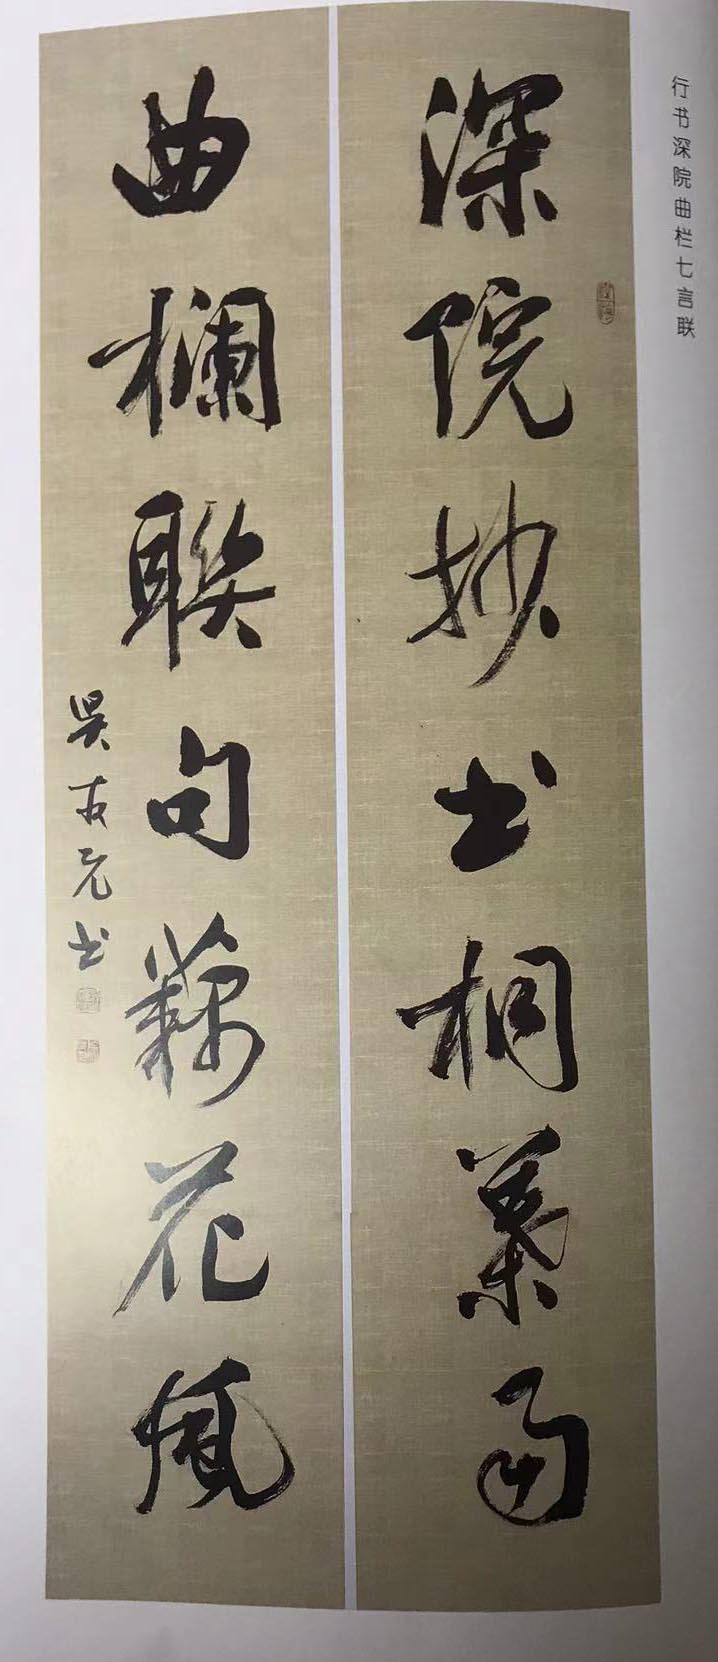 行书深院曲栏七言联
深院抄书桐叶雨
曲欄聯句藕花風
吴友元书